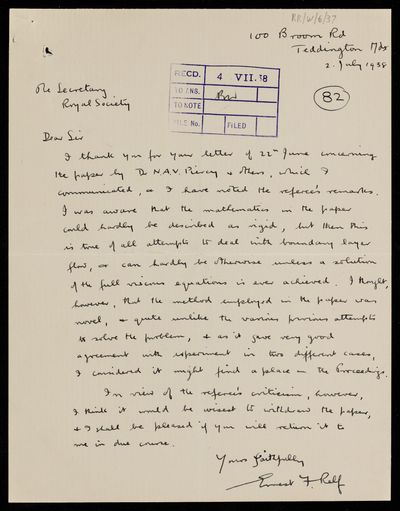 RR/W/6/37
100 Broom Rd
Teddington Mdx
2. July 1938
RECD. 4 VII.38
TO ANS.
TO NOTE
FILE No. FILED
82
The Secretary
Royal Society
Dear Sir
I thank you for your letter of 22nd June concerning
the paper by Dr N.A.V. Piercy & others, which I
communicated, & I have noted the referee's remarks.
I was aware that the mathematics in the paper
could hardly be described as rigid, but then this
is true of all attempts to deal with boundary layer
flow, & can hardly be otherwise unless a solution
of the full viscous equations is ever achieved. I thought,
however, that the method employed in the paper was
novel, & quite unlike the various previous attempts
to solve the problem, & as it gave very good
agreement with experiment in two different cases,
I considered it might find a place in the Proceedings.
In view of the referee's criticism, however,
I think it would be wisest to withdraw the paper,
& I shall be pleased if you will return it to
me in due course.
Yours faithfully
Ernest F. Relf